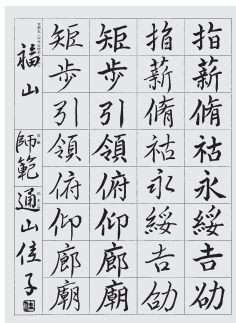 指薪脩祜永綏吉劭
指薪脩祜永綏吉劭
矩步引領俯仰廊廟
矩步引領俯仰廊廟
福山 師範 通山佳子